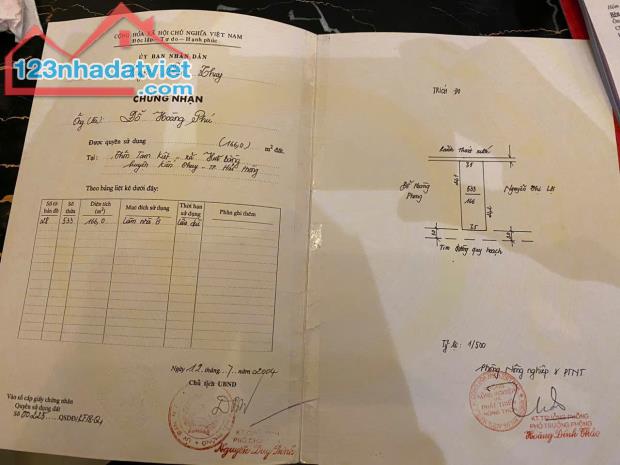 CỘNG HÒA XÃ HỘI CHỦ NGHĨA VIỆT NAM
Độc lập - Tự do - Hạnh phúc
123nhadatviet
ỦY BAN NHÂN DÂN
Thụy
CHỨNG NHẬN
Ông (Bà) Đỗ Hoàng Phú
Được quyền sử dụng (166,0) m² đất
Tại: Thôn Tam Kiệt - xã Hữu Bằng
huyện Kiến Thụy - TP Hải Phòng
Theo bảng liệt kê dưới đây:
Số tờ bản đồ Số thửa Diện tích (m²) Mục đích sử dụng Thời hạn sử dụng Phần ghi thêm
28 533 166,0 Làm nhà ở Lâu dài
Ngày 12 tháng 7 năm 2004
Chủ tịch UBND
KT CHỦ TỊCH
PHÓ CHỦ TỊCH
Nguyễn Duy
Vào sổ cấp giấy chứng nhận
Quyền sử dụng đất
Số QSDĐ
TRÍCH ĐO
3.5
Đỗ Hoàng Phong
533
166
Nguyễn Thị
3.5
Tim đường quy hoạch
Tỷ lệ: 1/500
Phòng Nông nghiệp & PTNT
PHÒNG
NÔNG NGHIỆP
PHÁT TRIỂN
NÔNG THÔN
KT TRƯỞNG PHÒNG
PHÓ TRƯỞNG PHÒNG
Hoàng Đình Thảo